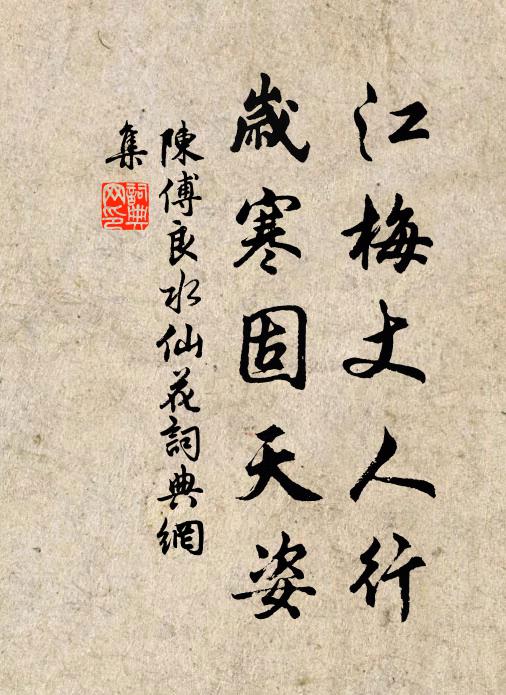 江梅丈人行
歲寒固天姿
陳傅良水仙花詞典網
集
詞典网印